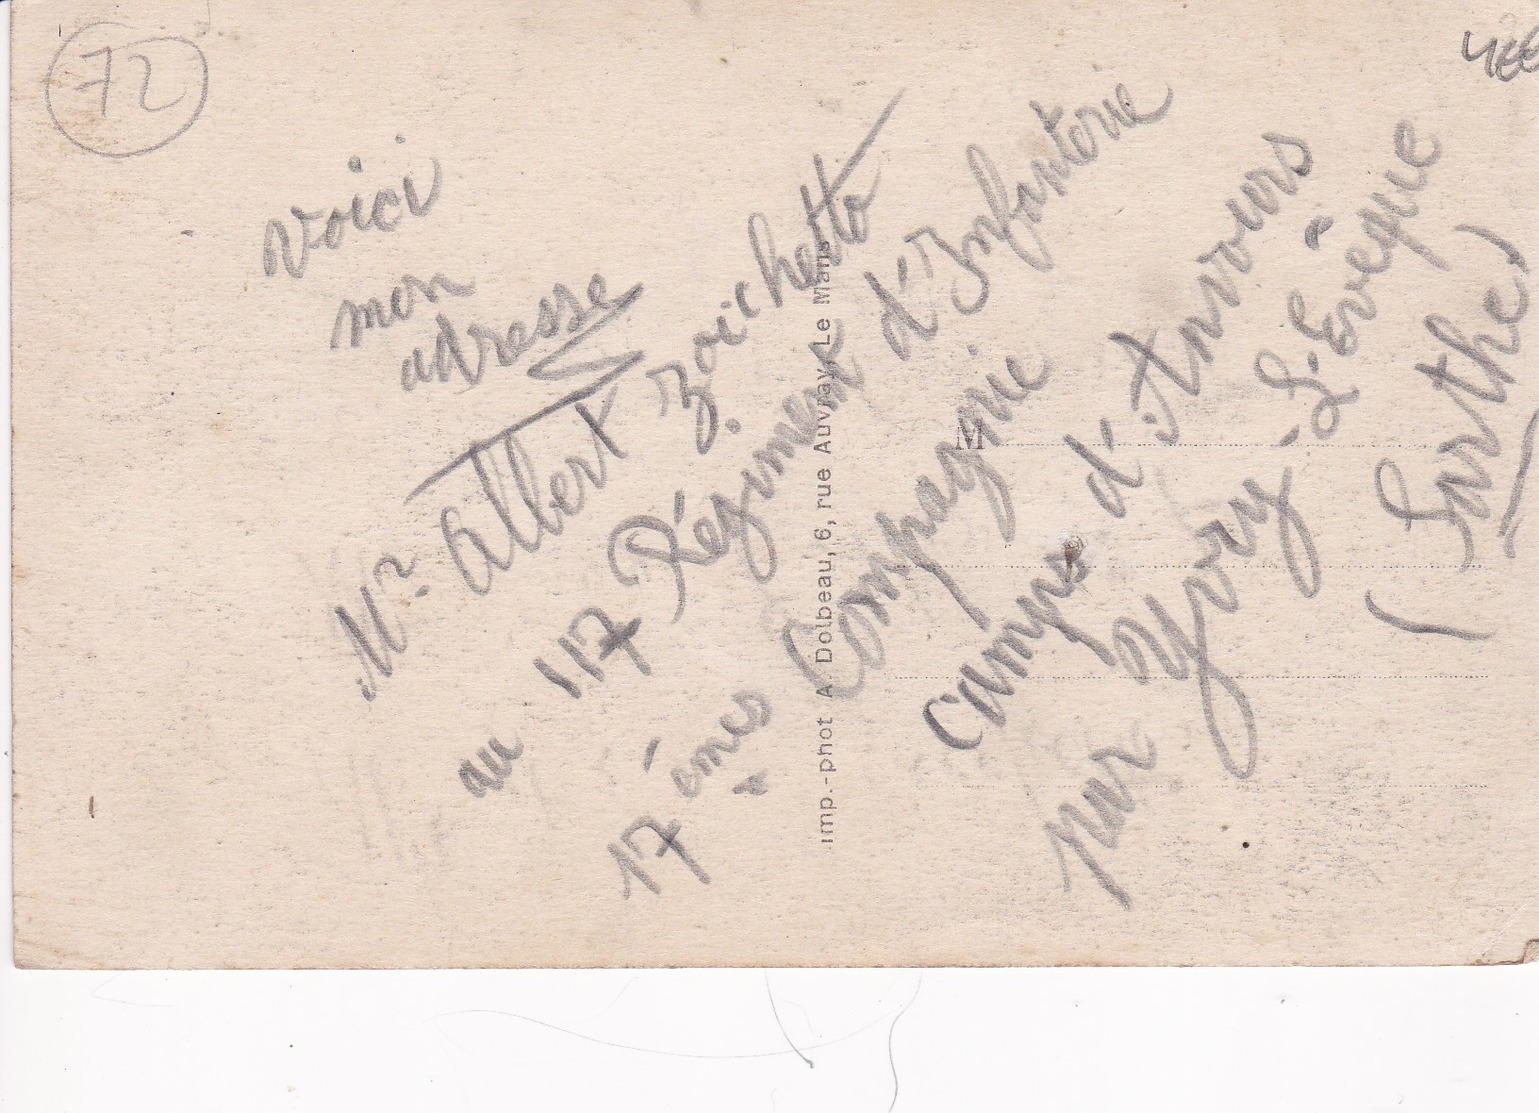 72
Voici
mon
adresse
Mr. Albert Zoichetta
au 117 Régiment d'Infanterie
17 èmes Compagnie
camps d'Auvours
par Yvry-L'Evêque
(Sarthe)
M
Imp.-phot A. Dolbeau, 6, rue Auvray, Le Mans